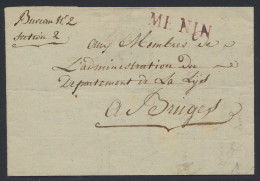 Bureau N.º 2
Section 2
MENIN
aux Membres de
L'administration du
Departement de La Lys
a Bruges